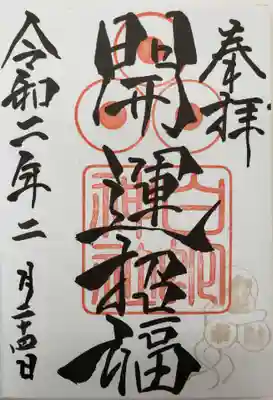 奉拝
開運招福
令和二年二月二十四日